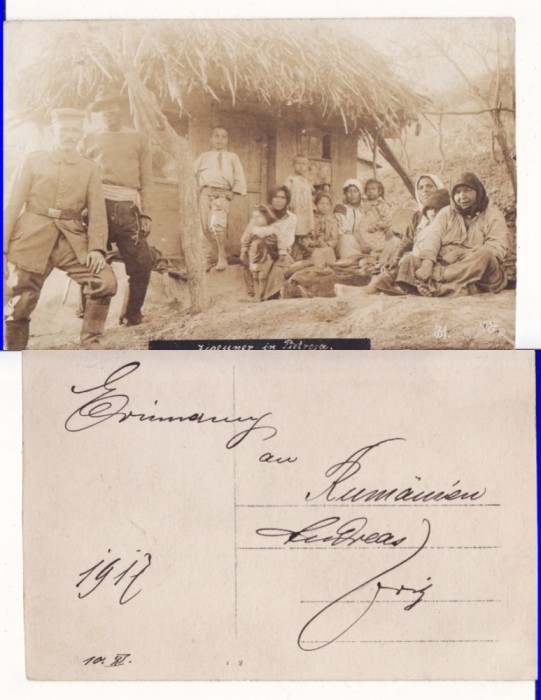 Zigeuner in Pietrosa.
Erinnerung
an
Rumänien
Andreas
1917
10. XI.